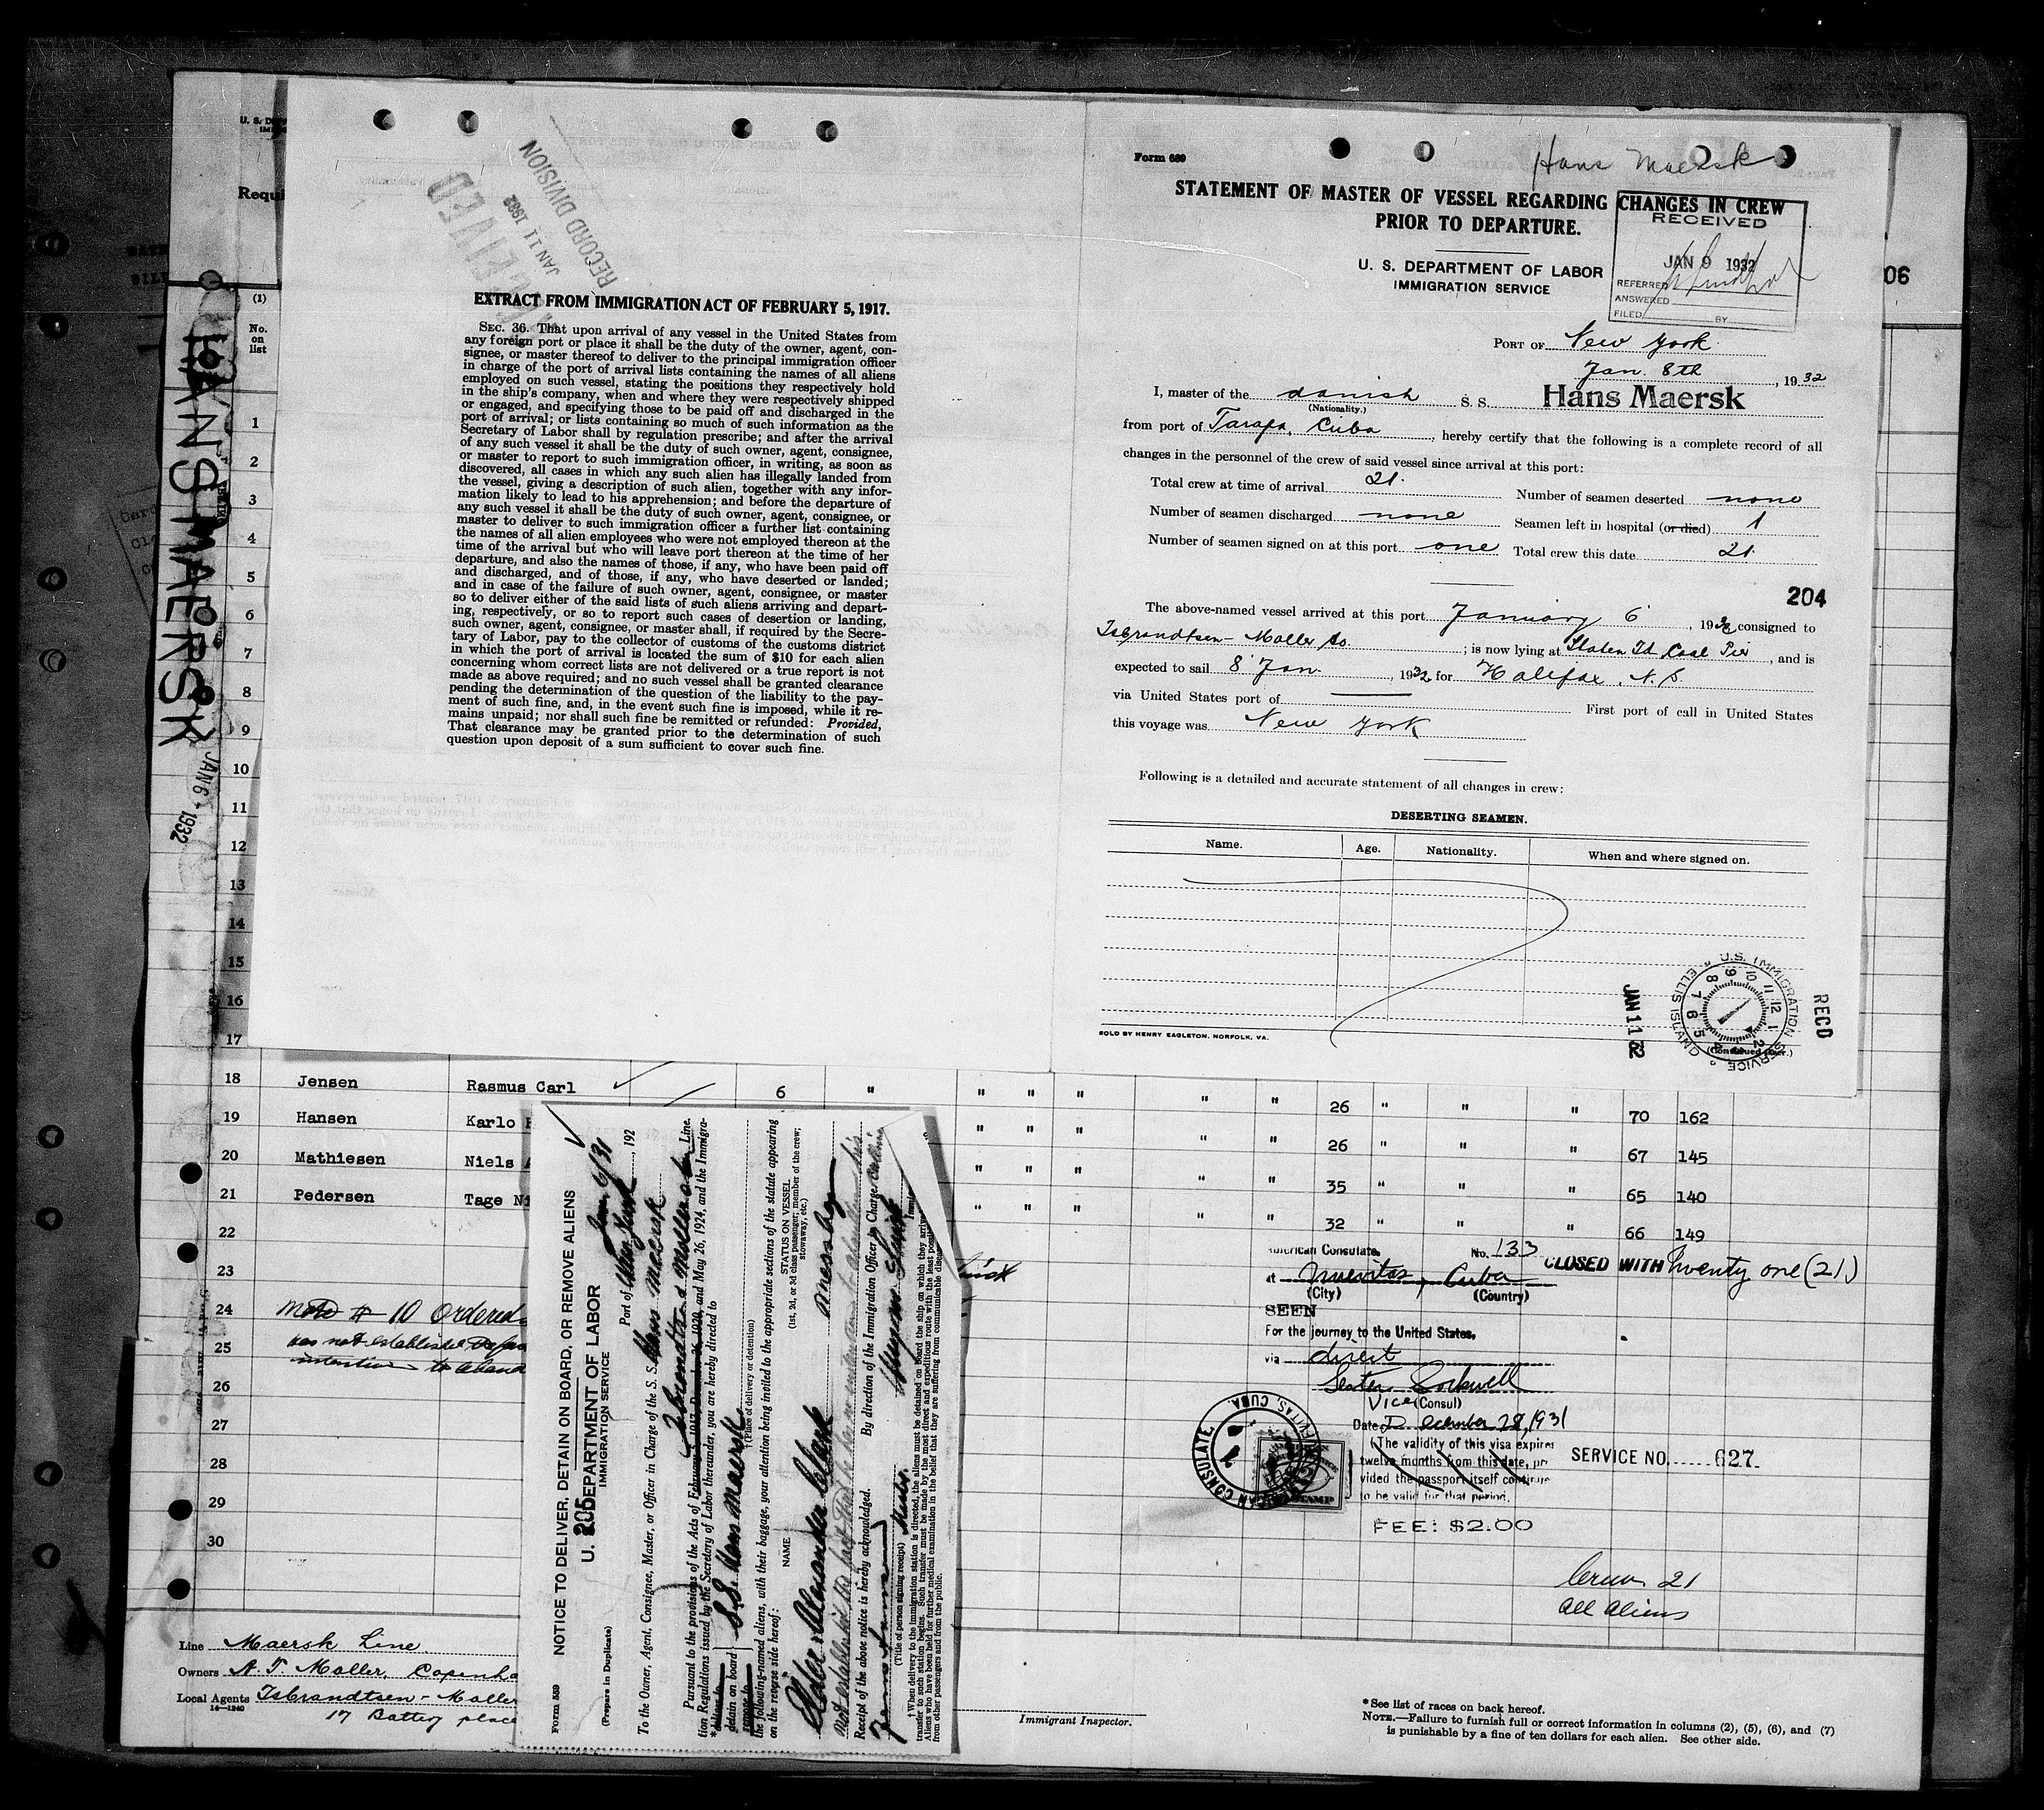 Hans Maersk
Form 689
STATEMENT OF MASTER OF VESSEL REGARDING CHANGES IN CREW
PRIOR TO DEPARTURE.
U. S. DEPARTMENT OF LABOR
IMMIGRATION SERVICE
RECEIVED
JAN 9 1932
REFERRED
ANSWERED
FILED BY
PORT OF New York
Jan. 8th, 1932
I, master of the danish S. S. Hans Maersk
(Nationality.)
from port of Tarafa, Cuba, hereby certify that the following is a complete record of all
changes in the personnel of the crew of said vessel since arrival at this port:
Total crew at time of arrival 21. Number of seamen deserted none
Number of seamen discharged none Seamen left in hospital (or died) 1
Number of seamen signed on at this port one Total crew this date 21.
204
The above-named vessel arrived at this port January 6, 1932 consigned to
Isbrandtsen-Moller Co.; is now lying at Staten Id Coal Pier, and is
expected to sail 8 Jan., 1932 for Halifax, N.S.
via United States port of First port of call in United States
this voyage was New York
Following is a detailed and accurate statement of all changes in crew:
DESERTING SEAMEN.
Name. Age. Nationality. When and where signed on.
SOLD BY HENRY EAGLETON, NORFOLK, VA.
(Continued over.)
U.S. IMMIGRATION SERVICE
ELLIS ISLAND
JAN 11 32
RECD
RECEIVED
JAN 11 1932
RECORD DIVISION
EXTRACT FROM IMMIGRATION ACT OF FEBRUARY 5, 1917.
SEC. 36. That upon arrival of any vessel in the United States from
any foreign port or place it shall be the duty of the owner, agent, con-
signee, or master thereof to deliver to the principal immigration officer
in charge of the port of arrival lists containing the names of all aliens
employed on such vessel, stating the positions they respectively hold
in the ship's company, when and where they were respectively shipped
or engaged, and specifying those to be paid off and discharged in the
port of arrival; or lists containing so much of such information as the
Secretary of Labor shall by regulation prescribe; and after the arrival
of any such vessel it shall be the duty of such owner, agent, consignee,
or master to report to such immigration officer, in writing, as soon as
discovered, all cases in which any such alien has illegally landed from
the vessel, giving a description of such alien, together with any infor-
mation likely to lead to his apprehension; and before the departure of
any such vessel it shall be the duty of such owner, agent, consignee, or
master to deliver to such immigration officer a further list containing
the names of all alien employees who were not employed thereon at the
time of the arrival but who will leave port thereon at the time of her
departure, and also the names of those, if any, who have been paid off
and discharged, and of those, if any, who have deserted or landed;
and in case of the failure of such owner, agent, consignee, or master
so to deliver either of the said lists of such aliens arriving and depart-
ing, respectively, or so to report such cases of desertion or landing,
such owner, agent, consignee, or master shall, if required by the Secre-
tary of Labor, pay to the collector of customs of the customs district
in which the port of arrival is located the sum of $10 for each alien
concerning whom correct lists are not delivered or a true report is not
made as above required; and no such vessel shall be granted clearance
pending the determination of the question of the liability to the pay-
ment of such fine, and, in the event such fine is imposed, while it re-
mains unpaid; nor shall such fine be remitted or refunded: Provided,
That clearance may be granted prior to the determination of such
question upon deposit of a sum sufficient to cover such fine.
HANS MAERSK
JAN 6 - 1932
Requi
06
(1)
No.
on
list
1
2
3
4
5
6
7
8
9
10
11
12
13
14
15
16
17
18 Jensen Rasmus Carl 6 " " " " " " 26 " " " 70 162
19 Hansen Karlo " " " " " 26 " " " 67 145
20 Mathiesen Niels " " " " " 35 " " " 65 140
21 Pedersen Tage " " " " " 32 " " " 66 149
22
23
24
25
26
27
28
29
30
# 10 Ordered
was not established
intention to
American Consulate. No. 133
at Nuevitas, Cuba
(City) (Country)
CLOSED WITH Twenty one (21)
SEEN
For the journey to the United States.
via direct
Sockwell
Vice (Consul)
Date December 28, 1931
(The validity of this visa expires
twelve months from this date, pro
vided the passport itself continue
to be valid for that period.
FEE: $2.00
SERVICE NO. 627.
AMERICAN CONSULATE. NUEVITAS, CUBA.
Crew 21
All Aliens
Line Maersk Line
Owners A. P. Moller, Copenha
Local Agents Isbrandtsen-Moller
14-1240
17 Battery place
Immigrant Inspector.
*See list of races on back hereof.
NOTE.—Failure to furnish full or correct information in columns (2), (5), (6), and (7)
is punishable by a fine of ten dollars for each alien. See other side.
Form 559
(Prepare in Duplicate)
NOTICE TO DELIVER, DETAIN ON BOARD, OR REMOVE ALIENS
205
U. S. DEPARTMENT OF LABOR
IMMIGRATION SERVICE
Port of New York
Jan 6/31, 192
To the Owner, Agent, Consignee, Master, or Officer in Charge of the S. S. Hans Maersk
Isbrandtsen Moller Line.
Pursuant to the provisions of the Acts of February 5, 1917, December 26, 1920, and May 26, 1924, and the Immigra-
tion Regulations issued by the Secretary of Labor thereunder, you are hereby directed to
*deliver to
detain on board S.S. Hans Maersk
remove to
†(Place of delivery or detention)
the following-named aliens, with their baggage, your attention being invited to the appropriate sections of the statute appearing
on the reverse side hereof:
NAME
STATUS ON VESSEL
(1st, 2d, or 3d class passenger; member of the crew;
stowaway, etc.)
Elder Alexander Clark Mess boy
Receipt of the above notice is hereby acknowledged. By direction of the Immigration Officer in Charge.
(Title of person signing receipt)
†When delivery to the immigration station is directed, the aliens must be detained on board the ship on which they arrive
transfer to such station begins. Such transfer must be made by the most direct and expeditious route with the least possi
Aliens who have been held for further medical examination in the belief that they are suffering from communicable disea
from other passengers and from the public.